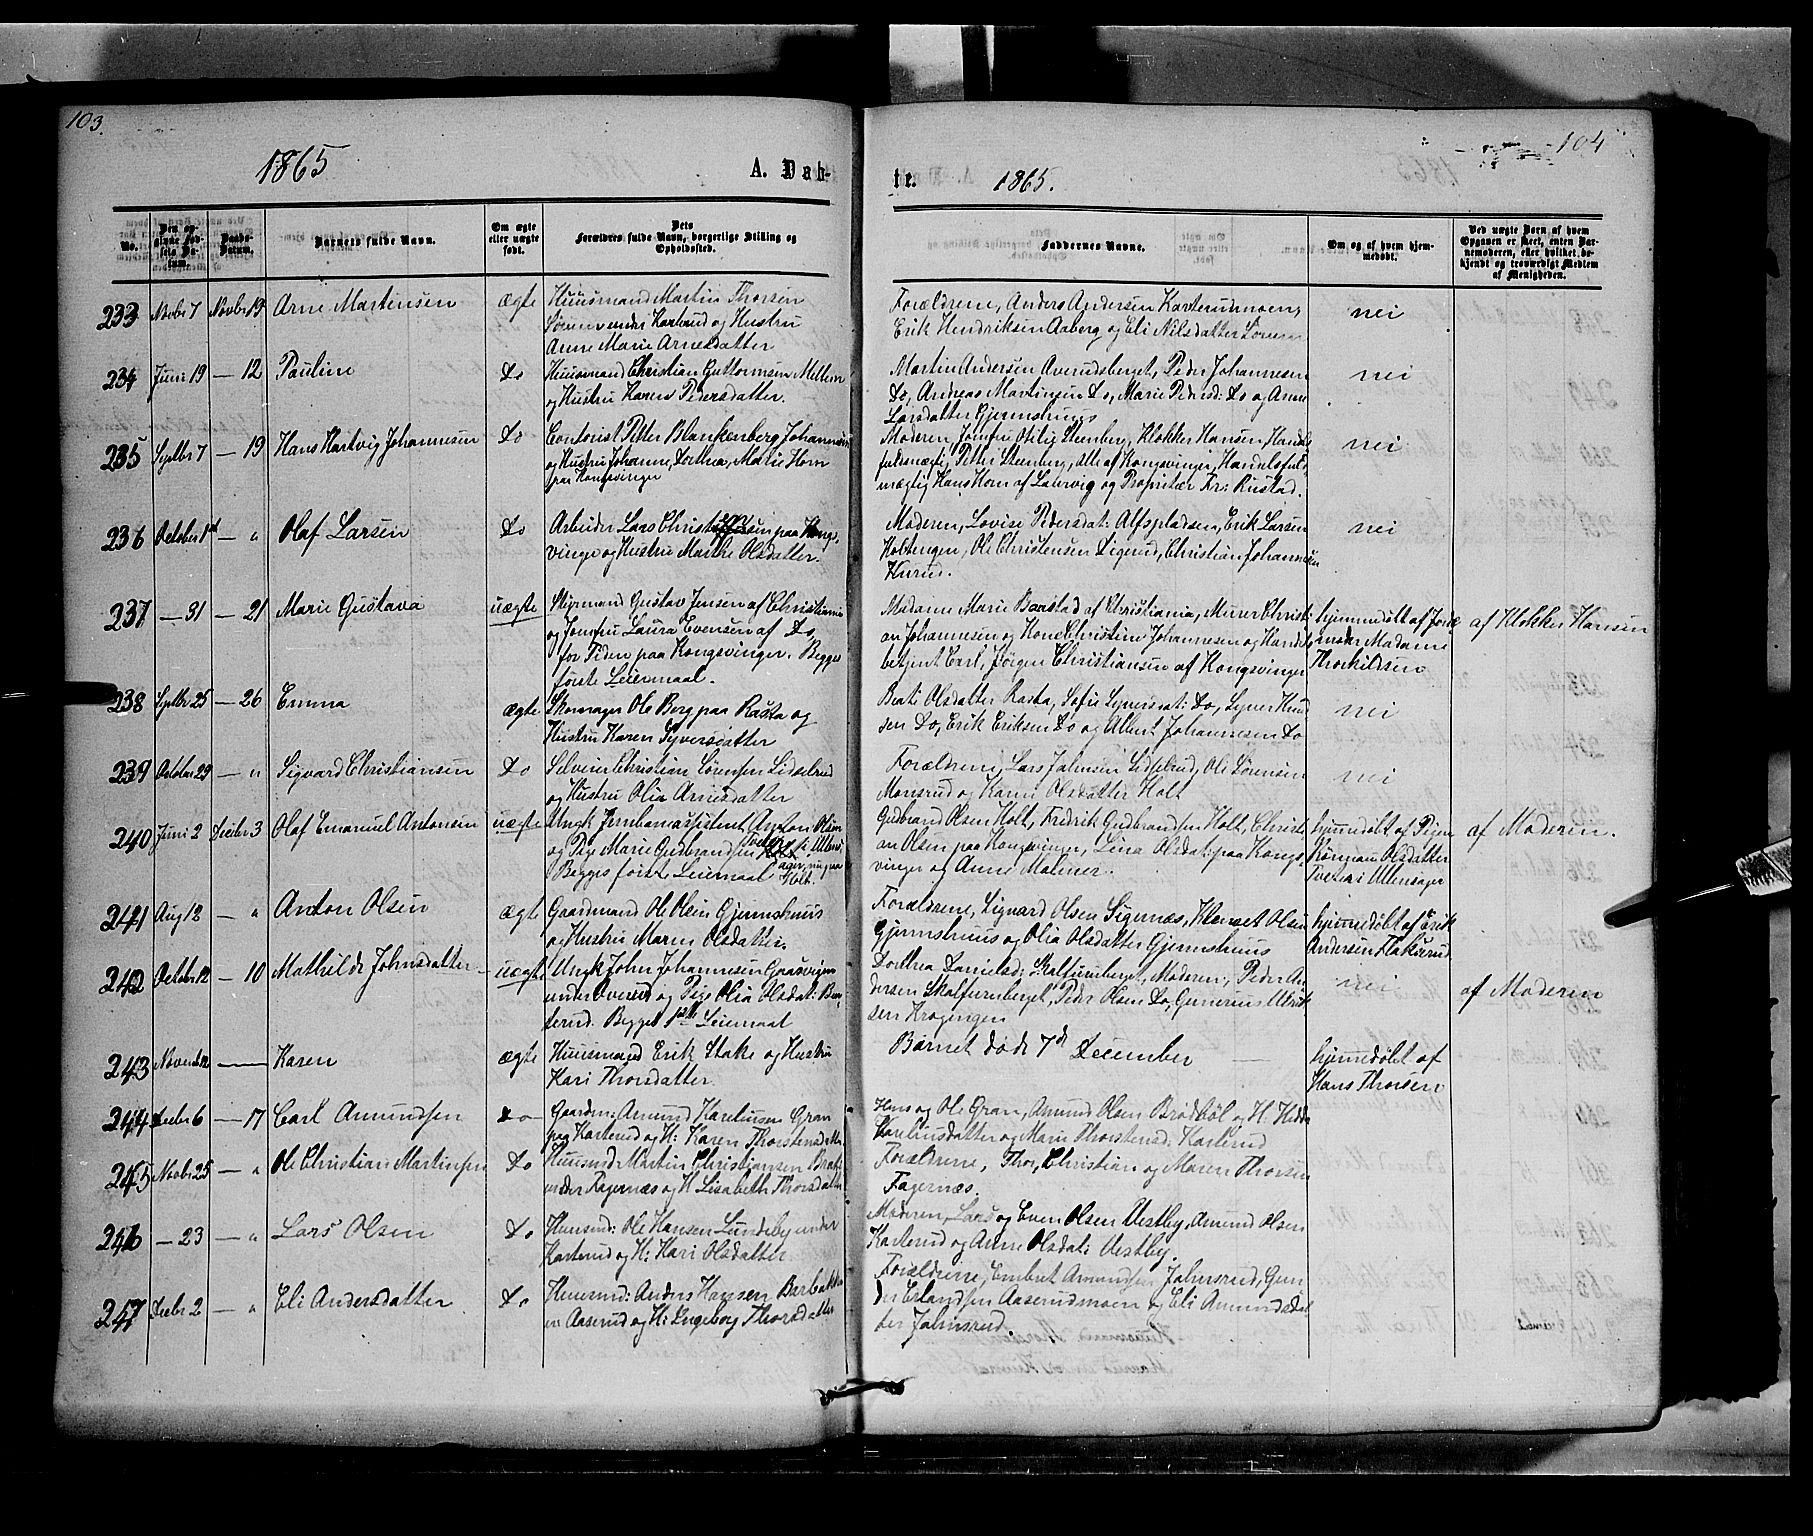 103.
1865
A. Døb-
No.
Den op-
givne Fød-
sels Da-
tum.
Daabs-
Datum.
Barnets fulde Navn.
Om ægte
eller uægte
født.
Dets
Forældres fulde Navn, borgerlige Stilling og
Opholdssted.
233 Novbr 7 Novbr 19 Arne Martinsen ægte Huusmand Martin Thorsen
under Karterud og Hustru
Anne Marie Arnesdatter
234 Juni 19 — 12 Pauline Do Huusmand Christian Guttormsen Mellem
og Hustru Karen Pedersdatter.
235 Septbr 7 — 19 Hans Hartvig Johannesen Do Contorist Petter Blankenberg Johannesen
og Hustru Johanne Dorthea Marie Horn
paa Kongsvinger
236 October 1st — " Olaf Larsen Do Arbeider Lars paa Kongs-
vinger og Hustru Marthe Olsdatter.
237 — 31 — 21 Marie Gustava uægte Styrmand Gustav Jensen af Christiania
og Jomfru Laura Evensen af Do,
for Tiden paa Kongsvinger. Begges
første Leiermaal.
238 Septbr 25 — 26 Emma ægte Skomager Ole Berg paa Rasta og
Hustru Karen Syversdatter
239 October 29 — " Sigvard Christiansen Do Selveier Christian Sørensen Lidselrud
og Hustru Olia Arnesdatter
240 Juni 2 Decbr 3 Olaf Emanuel Antonsen uægte Ungk Jernbaneassistent Anton Olsen
og Pige Marie Gudbrandsen
Begges første Leiermaal Holt.
241 Aug 12 — " Anton Olsen ægte Gaardmand Ole Olsen Gjermshuus
og Hustru Maren Olsdatter.
242 October 12 — 10 Mathilde Johnsdatter uægte Ungk John Johannesen Graasvigen
under Overud og Pige Olia Olsdat:
Begges 1ste Leiermaal
243 Novembr 12 —— Karen ægte Huusmand Erik Stake og Hustru
Kari Thorsdatter.
244 Decbr 6 — 17 Carl Amundsen Do Gaardm: Amund Karelius en Gran
paa Karterud og H: Karen Thorstensdatter
245 Novbr 25 — " Ole Christian Martinsen Do Huusmd Martin Christiansen
under Fagernæs og H Lisabeth Thorsdatter
246 — 23 — " Lars Olsen Do Huusmd: Ole Hansen Lundeby under
Karterud og H: Kari Olsdatter
247 Decbr 2 — " Eli Andersdatter Do Huusmd: Anders Hansen Barbakken
Aaserud og H: Ingeborg Thorsdatter
104
te.
1865.
Faddernes Navne.
Om og af hvem hjem-
medøbt.
Ved uægte Børn af hvem
Opgaven er skeet, enten Bar-
nemoderen, eller hvilket be-
kjendt og troværdigt Medlem
af Menigheden.
Forældrene, Anders Andersen Karterudmoen, nei
Erik Hendriksen Aaberg og Eli Nilsdatter
Martin Andersen Overudsberget, Peder Johannesen nei
Do, Andreas Martinsen Do, Marie Pedersd: Do og Anne
Larsdatter Gjermshuus
Moderen, Jomfru Otilie Steenberg, Klokker Hansen, Handels- nei
fuldmægtig Petter Steenberg, alle af Kongsvinger, Handelsfuld-
mægtig Hans Horn af Laurvig og Proprietær Fr: Rustad.
Moderen, Lovise Pedersdat: Alfspladsen, Erik Larsen nei
Holtengen, Ole Christensen Digerud, Christian Johannesen
Kurud.
Madame Marie Baastad af Christiania, Murer Christi- hjemmedøbt af Jorde- af Klokker Hansen
an Johannesen og Kone Christine Johannesen og Handels- moder Madame
betjent Carl Jørgen Christiansen af Kongsvinger Thorkildsen
Beate Olsdatter Rasta, Sofie Syversdat: Do, Syver Knud- nei
sen Do, Erik Eriksen Do og Albert Johannesen Do
Forældrene, Lars Lidselrud, Ole Sørensen nei
Monsrud og Karen Olsdatter Holt
Gudbrand Olsen Holt, Fredrik Gudbrandsen Holt, Christi- hjemmedøbt af Pigen af Moderen.
an Olsen paa Kongsvinger, Lina Olsdat: paa Kongs- Olsdatter
vinger og Anne Malmer. i Ullensager
Forældrene, Sigvard Olsen Sigernæs, Olsen hjemmedøbt af Erik
Gjermshuus og Olia Olsdatter Gjermshuus Andersen
Dorthea Danielsd: Skalfurruberget, Moderen, Peder An- nei af Moderen
dersen Skalfurruberget, Peder Olsen Do, Gunerius Ulrik-
sen Krogengen
Barnet døde 7d December hjemmedøbt af
Hans Thorsen
Hens og Ole Gran, Amund Olsen Brødbøl og H:
Karelinsdatter og Marie Thorstensd: Karterud
Forældrene, Thor, Christian og Maren Thorsen
Fagernæs.
Moderen, Lars og Even Olsen Vestby, Amund Olsen
Karterud og Anne Olsdat: Vestby.
Forældrene, Embret Amundsen Jahnsrud, Gun-
der Erlandsen Aaserudmoen og Eli Amundsdat-
ter Jahnsrud.